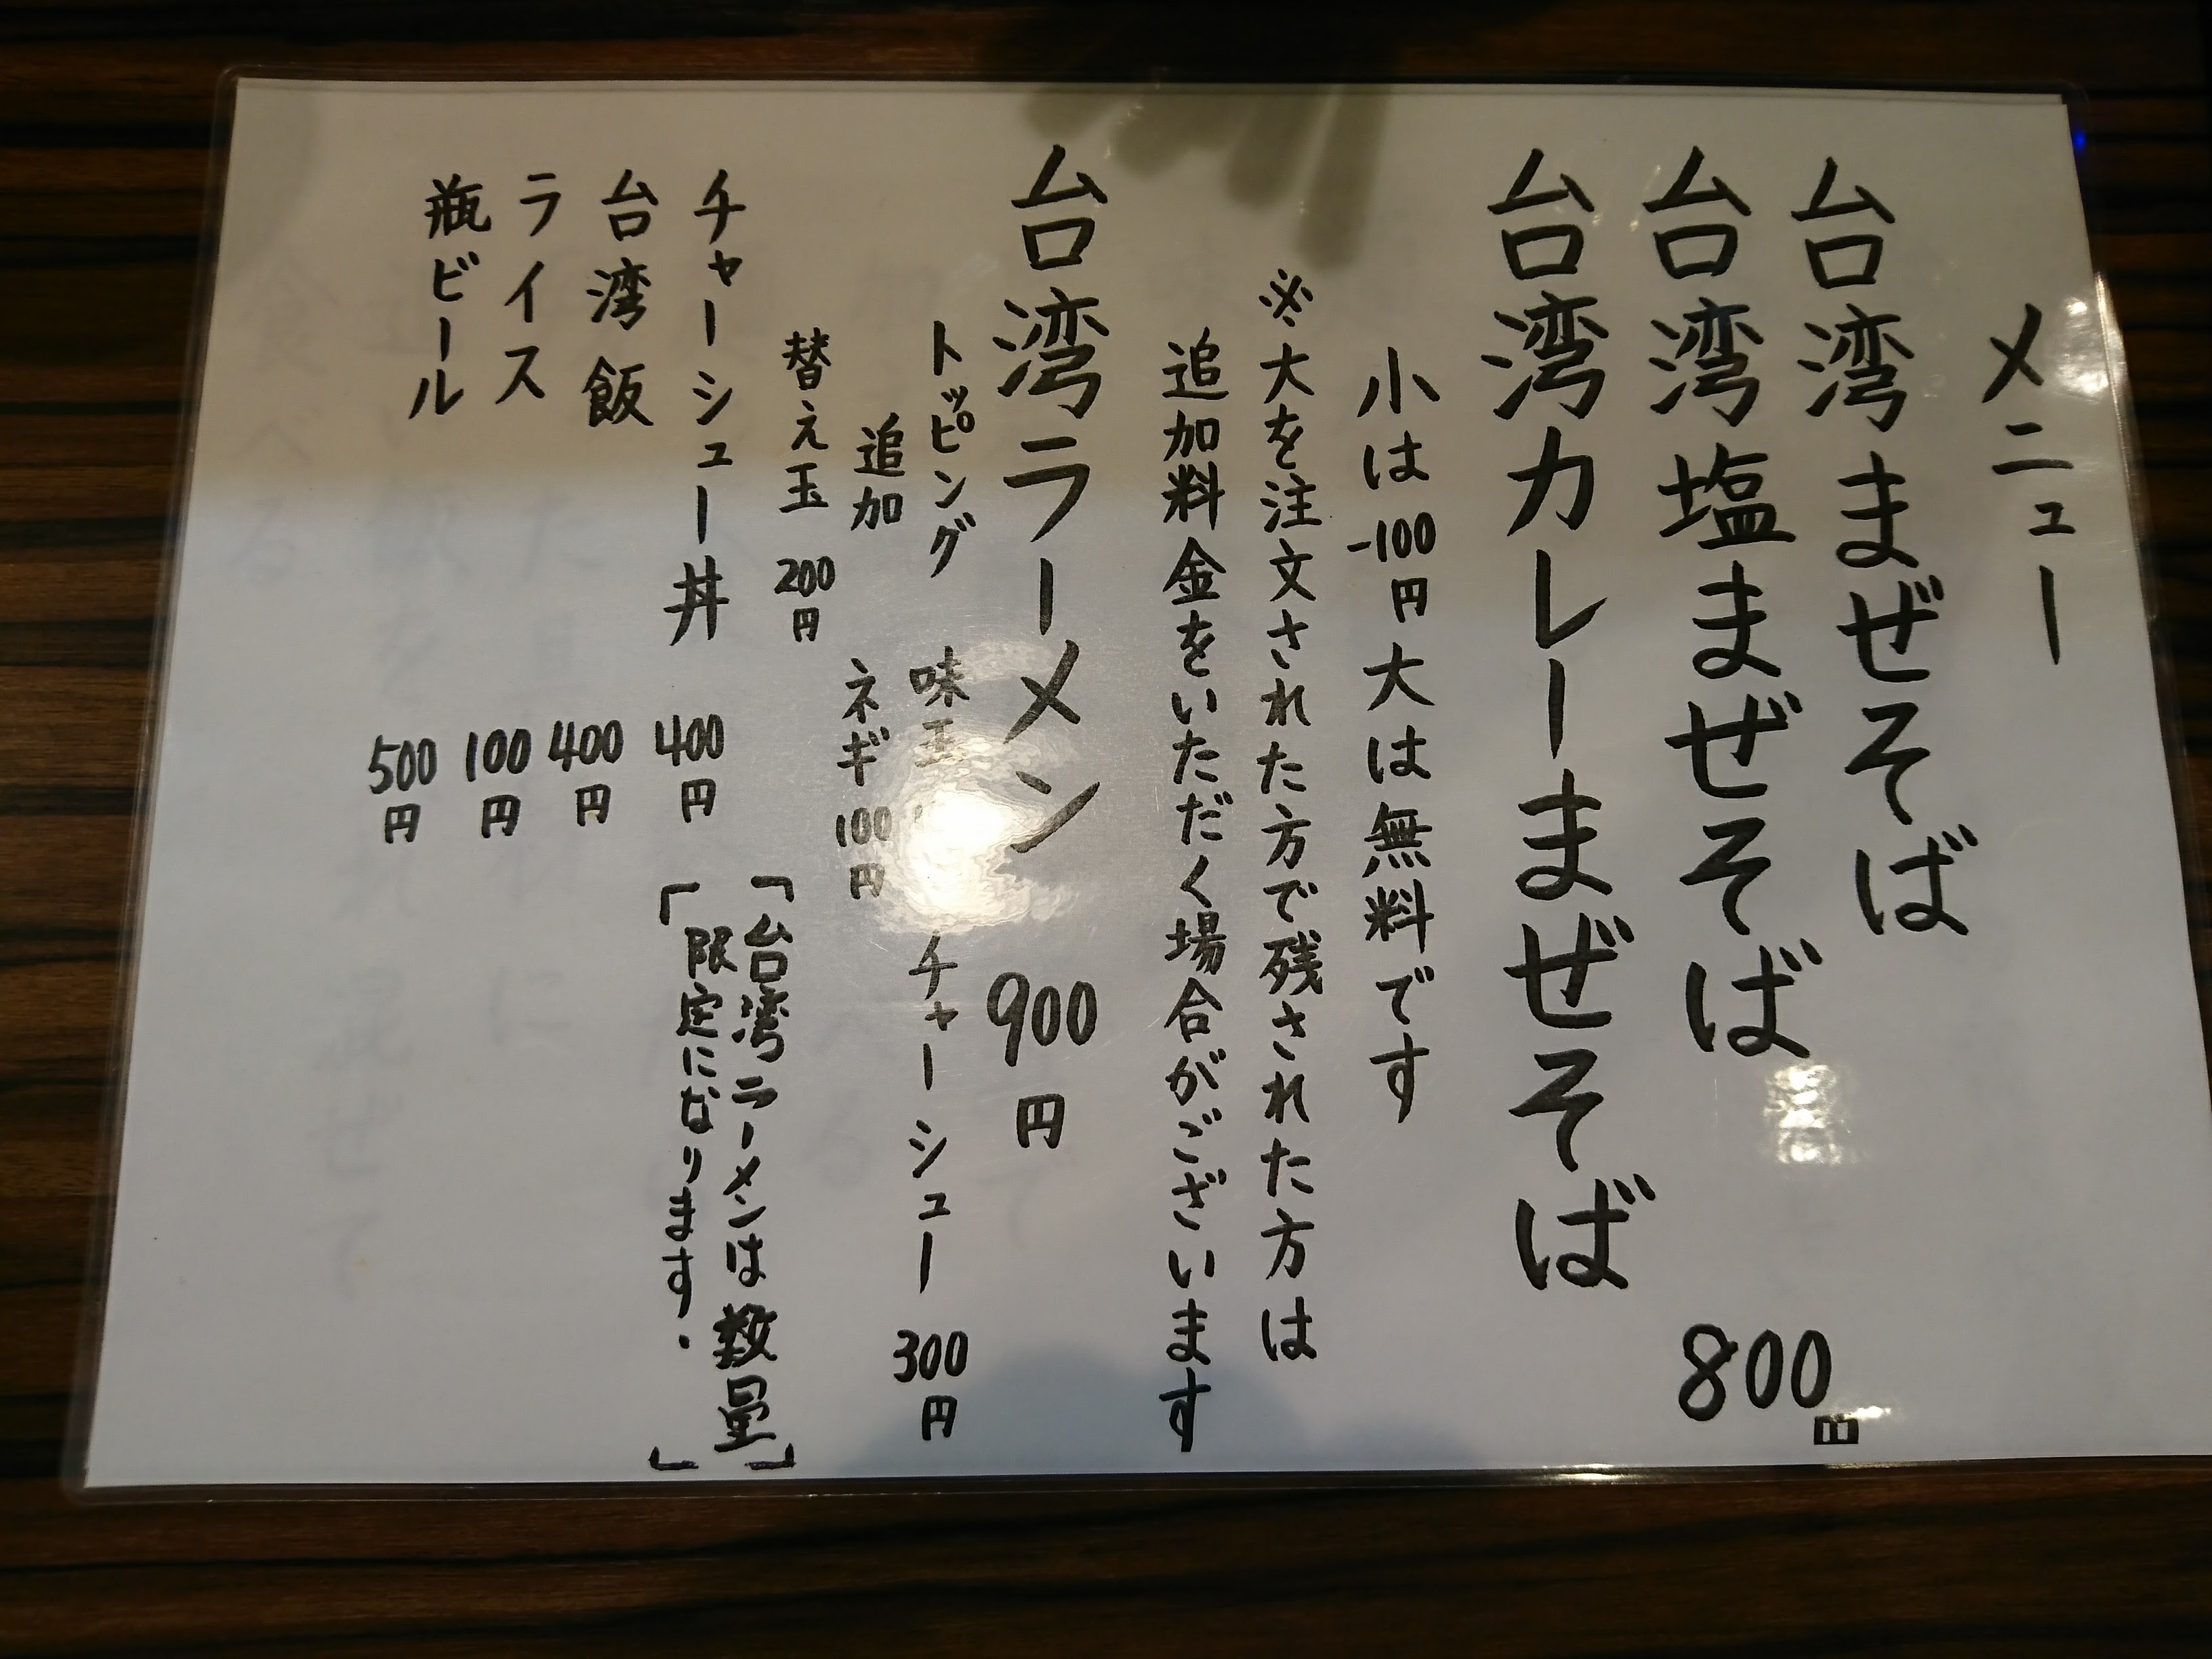 メニュー
台湾まぜそば
台湾塩まぜそば
800円
台湾カレーまぜそば
小は-100円大は無料です
※大を注文された方で残された方は
追加料金をいただく場合がございます
台湾ラーメン 900円
トッピング 味玉 チャーシュー 300円
追加 ネギ 100円
替え玉 200円
チャーシュー丼 400円
「台湾ラーメンは数量
限定になります.」
台湾飯 400円
ライス 100円
瓶ビール 500円